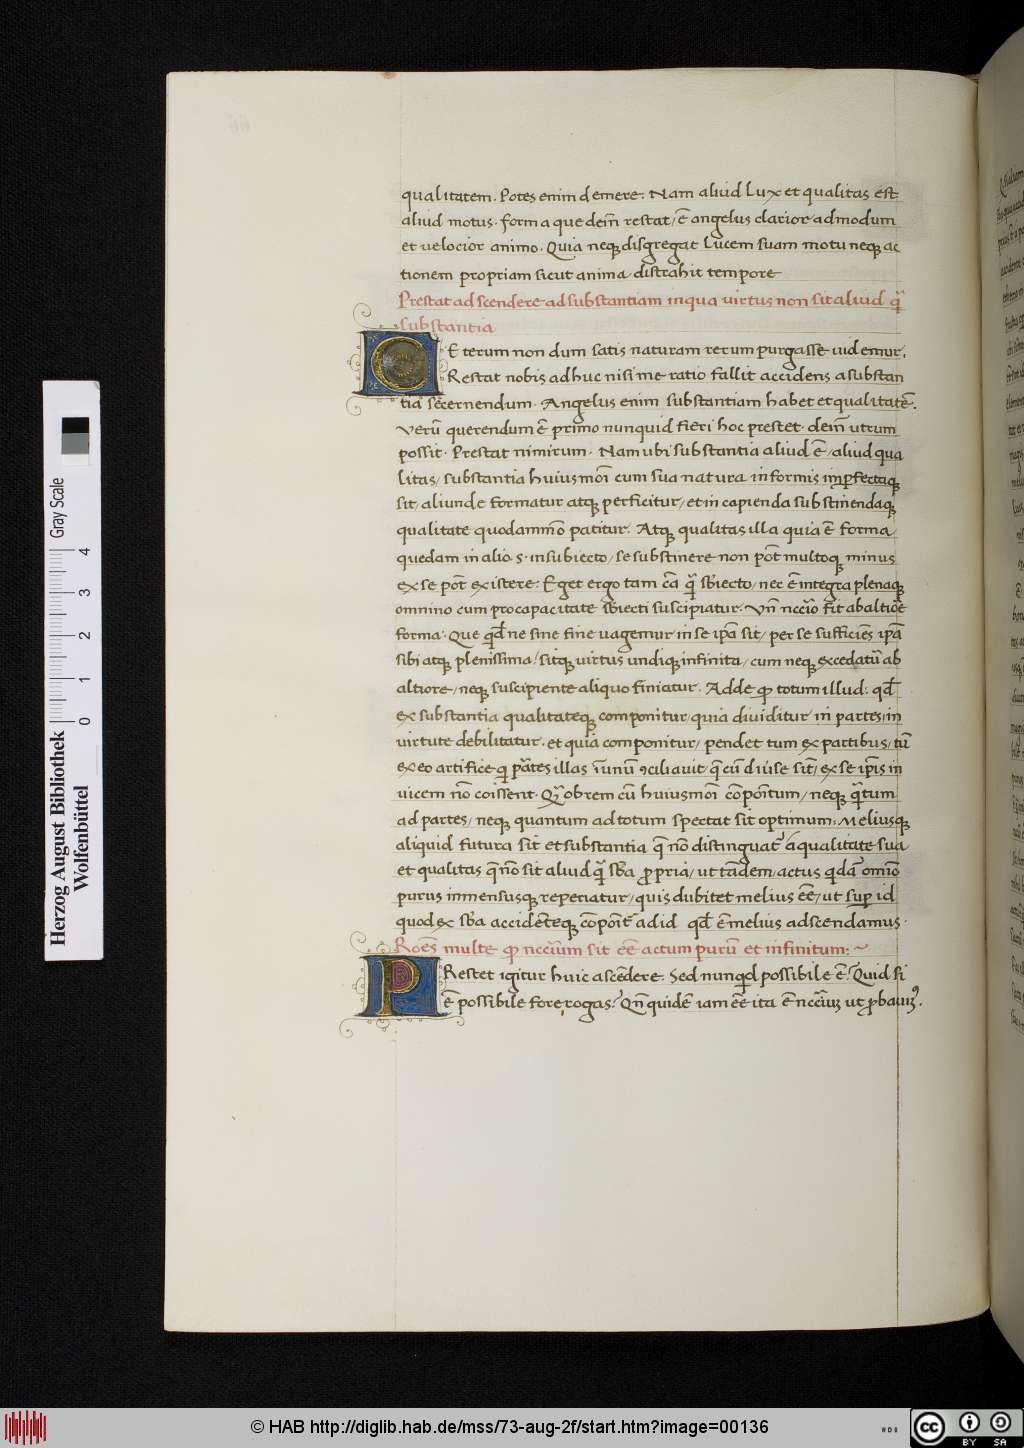 qualitatem. Potes enim demere. Nam aliud Lux et qualitas est
aliud motus. forma que dem̄ restat, ē angelus clarior admodum
et velocior animo. Quia neqꝫ disgregat Lucem suam motu neqꝫ ac
tionem propriam sicut anima distrahit tempore
Prestat ad scendere ad substantiam in qua virtus non sit aliud q̄
substantia
E terum non dum satis naturam rerum purgasse videmur.
Restat nobis ad huc nisi me ratio fallit accidens a substan
tia sēcernendum. Angelus enim substantiam habet et qualitatē.
Verū querendum ē primo nunquid fieri hoc prestet. dein̄ utrum
possit. Prestat nimirum. Nam ubi substantia aliud ē, aliud qua
litas, substantia huius mōi cum sua natura informis imꝑfectaqꝫ
sit, aliunde formatur atqꝫ perficitur, et in capienda substinendaqꝫ
qualitate quodammō patitur. Atqꝫ qualitas illa quia ē forma
quedam in alio .s. insubiecto, se substinere non pōt multoqꝫ minus
ex se pōt existere. Eget ergo tam cā q̄ sbiecto, nec ē integra plenaqꝫ
omnino cum pro capacitate sbiecti suscipiatur. Vn̄ nccīo fit ab altiōe
forma. Que qd̄ ne sine fine vagemur in se ipā sit, per se sufficiēs ipā
sibi atqꝫ plenissima, sitqꝫ virtus undiqꝫ infinita, cum neqꝫ excedatū ab
altiore, neqꝫ suscipiente aliquo finiatur. Adde ꝙ totum illud. qd̄
ex substantia qualitateqꝫ componitur, quia dividitur in partes, in
virtute debilitatur. et quia componitur, pendet tum ex partibus, tū
ex eo artifice qui ꝑātes illas ī unū ꝯciliavit. q̄ cū diūse sīt, ex se ip̄is in
vicem nō coissent. Qr̄ obrem cū huiusmōi cōpōitum, neqꝫ q̄tum
ad partes, neqꝫ quantum ad totum spectat sit optimum. Meliusqꝫ
aliquid futura sit et substantia q̄ nō distinguat᷑ a qualitate sua
et qualitas q̄ nō sit aliud q̄ sb̄a ꝓpria, ut tandem, actus qidā omīo
purus inmensusqꝫ reperiatur, quis dubitet melius eē, ut suꝑ id
quod ex sb̄a accidēteqꝫ cōpōit᷑ ad id qd̄ ē melius adscendamus.
Roēs multe ꝙ nccīum sit eē actum purū et infinitum:
Restet igitur huic ascēdere. Sed nunqd possibile ē? Quid si
ē possibile fore, rogas? Qn̄ quidē iam eē ita ē nccīuꝫ ut ꝓbauiꝰ.
Herzog August Bibliothek
Wolfenbüttel
0 1 2 3 4 Gray Scale
© HAB http://diglib.hab.de/mss/73-aug-2f/start.htm?image=00136
cc BY SA